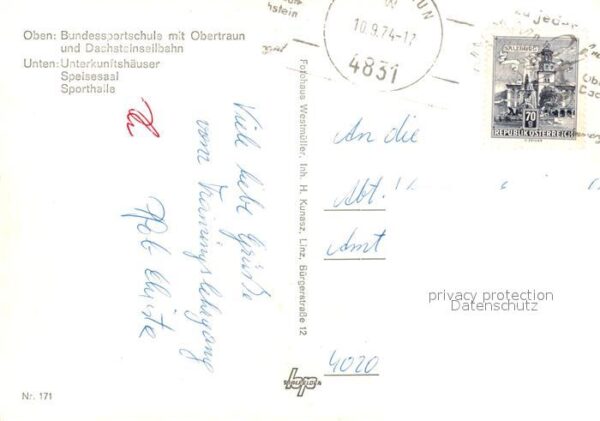 Oben: Bundessportschule mit Obertraun
und Dachsteinseilbahn
Unten: Unterkunftshäuser
Speisesaal
Sporthalle
Viele liebe Grüße
vom Trainingslehrgang
Christa
Fotohaus Westmüller, Inh. H. Kunasz, Linz, Bürgerstraße 12
10.9.74-17
4831
SALZBURG
70
REPUBLIK ÖSTERREICH
An die
Abt.
Amt
4020
privacy protection
Datenschutz
Nr. 171